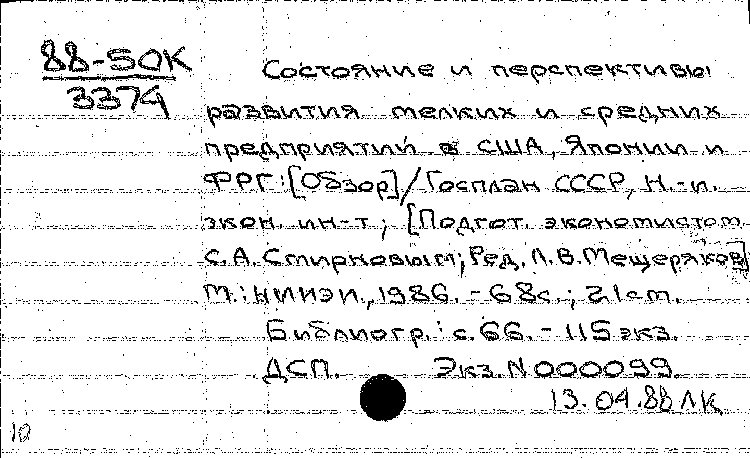 88-50К
3374
Состояние и перспективы
развития мелких и средних
предприятий в США, Японии и
ФРГ: [Обзор]/Госплан СССР, Н.-и.
экон. ин-т; [Подгот. экономистом
С.А. Смирновым; Ред. Л.В. Мещеряков]
М.: НИИЭИ, 1986. - 68с.; 21см.
Библиогр.: с. 66. - 115 экз.
ДСП. Экз. N 000099.
13.04.88 ЛК
10